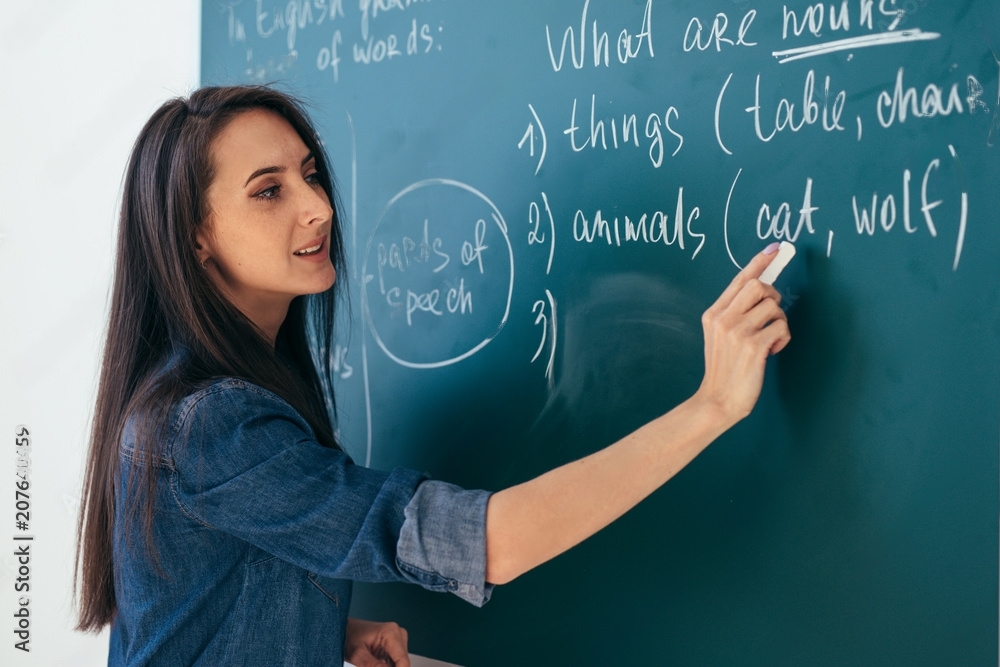 In English gram
of words:
parts of
speech
What are nouns
1) things (table, chair
2) animals (cat, wolf)
3)
Adobe Stock | #207640459